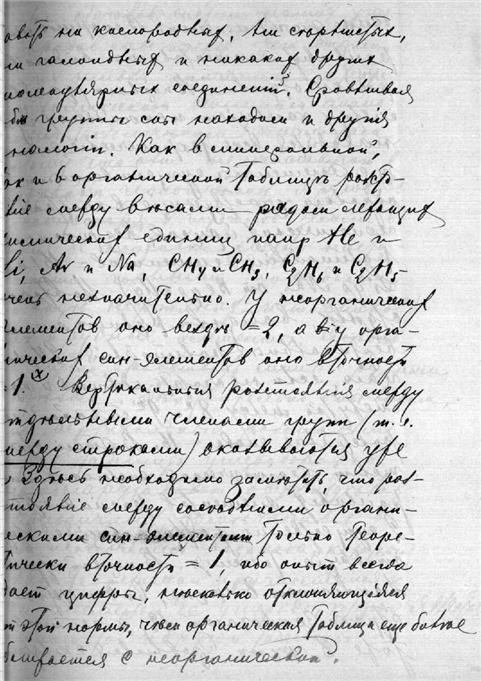 ни кислородных, ни сернистых,
ни галоидных и никаких других
молекулярных соединений. Сравнивая
группы мы находим и другия
аналогии. Как в минеральной,
так и в органической таблице
между весами рядом лежащих
химических единиц напр He и
Li, Ar и Na, CH4 и CH3, C2H6 и C2H5 -
очень незначительно. У неорганических
элементов оно везде = 2, а у орга-
нических элементов оно в точности
1.x Вертикальныя разстояния между
отдельными членами групп (т. е.
между строками) оказываются уже
Здесь необходимо заметить, что раз-
стояние между соседними органи-
ческими элементами только теоре-
тически в точности = 1, ибо опыт всегда
дает цифры, несколько отклоняющияся
от этой нормы, чем органическая таблица еще более
сближается с неорганической.